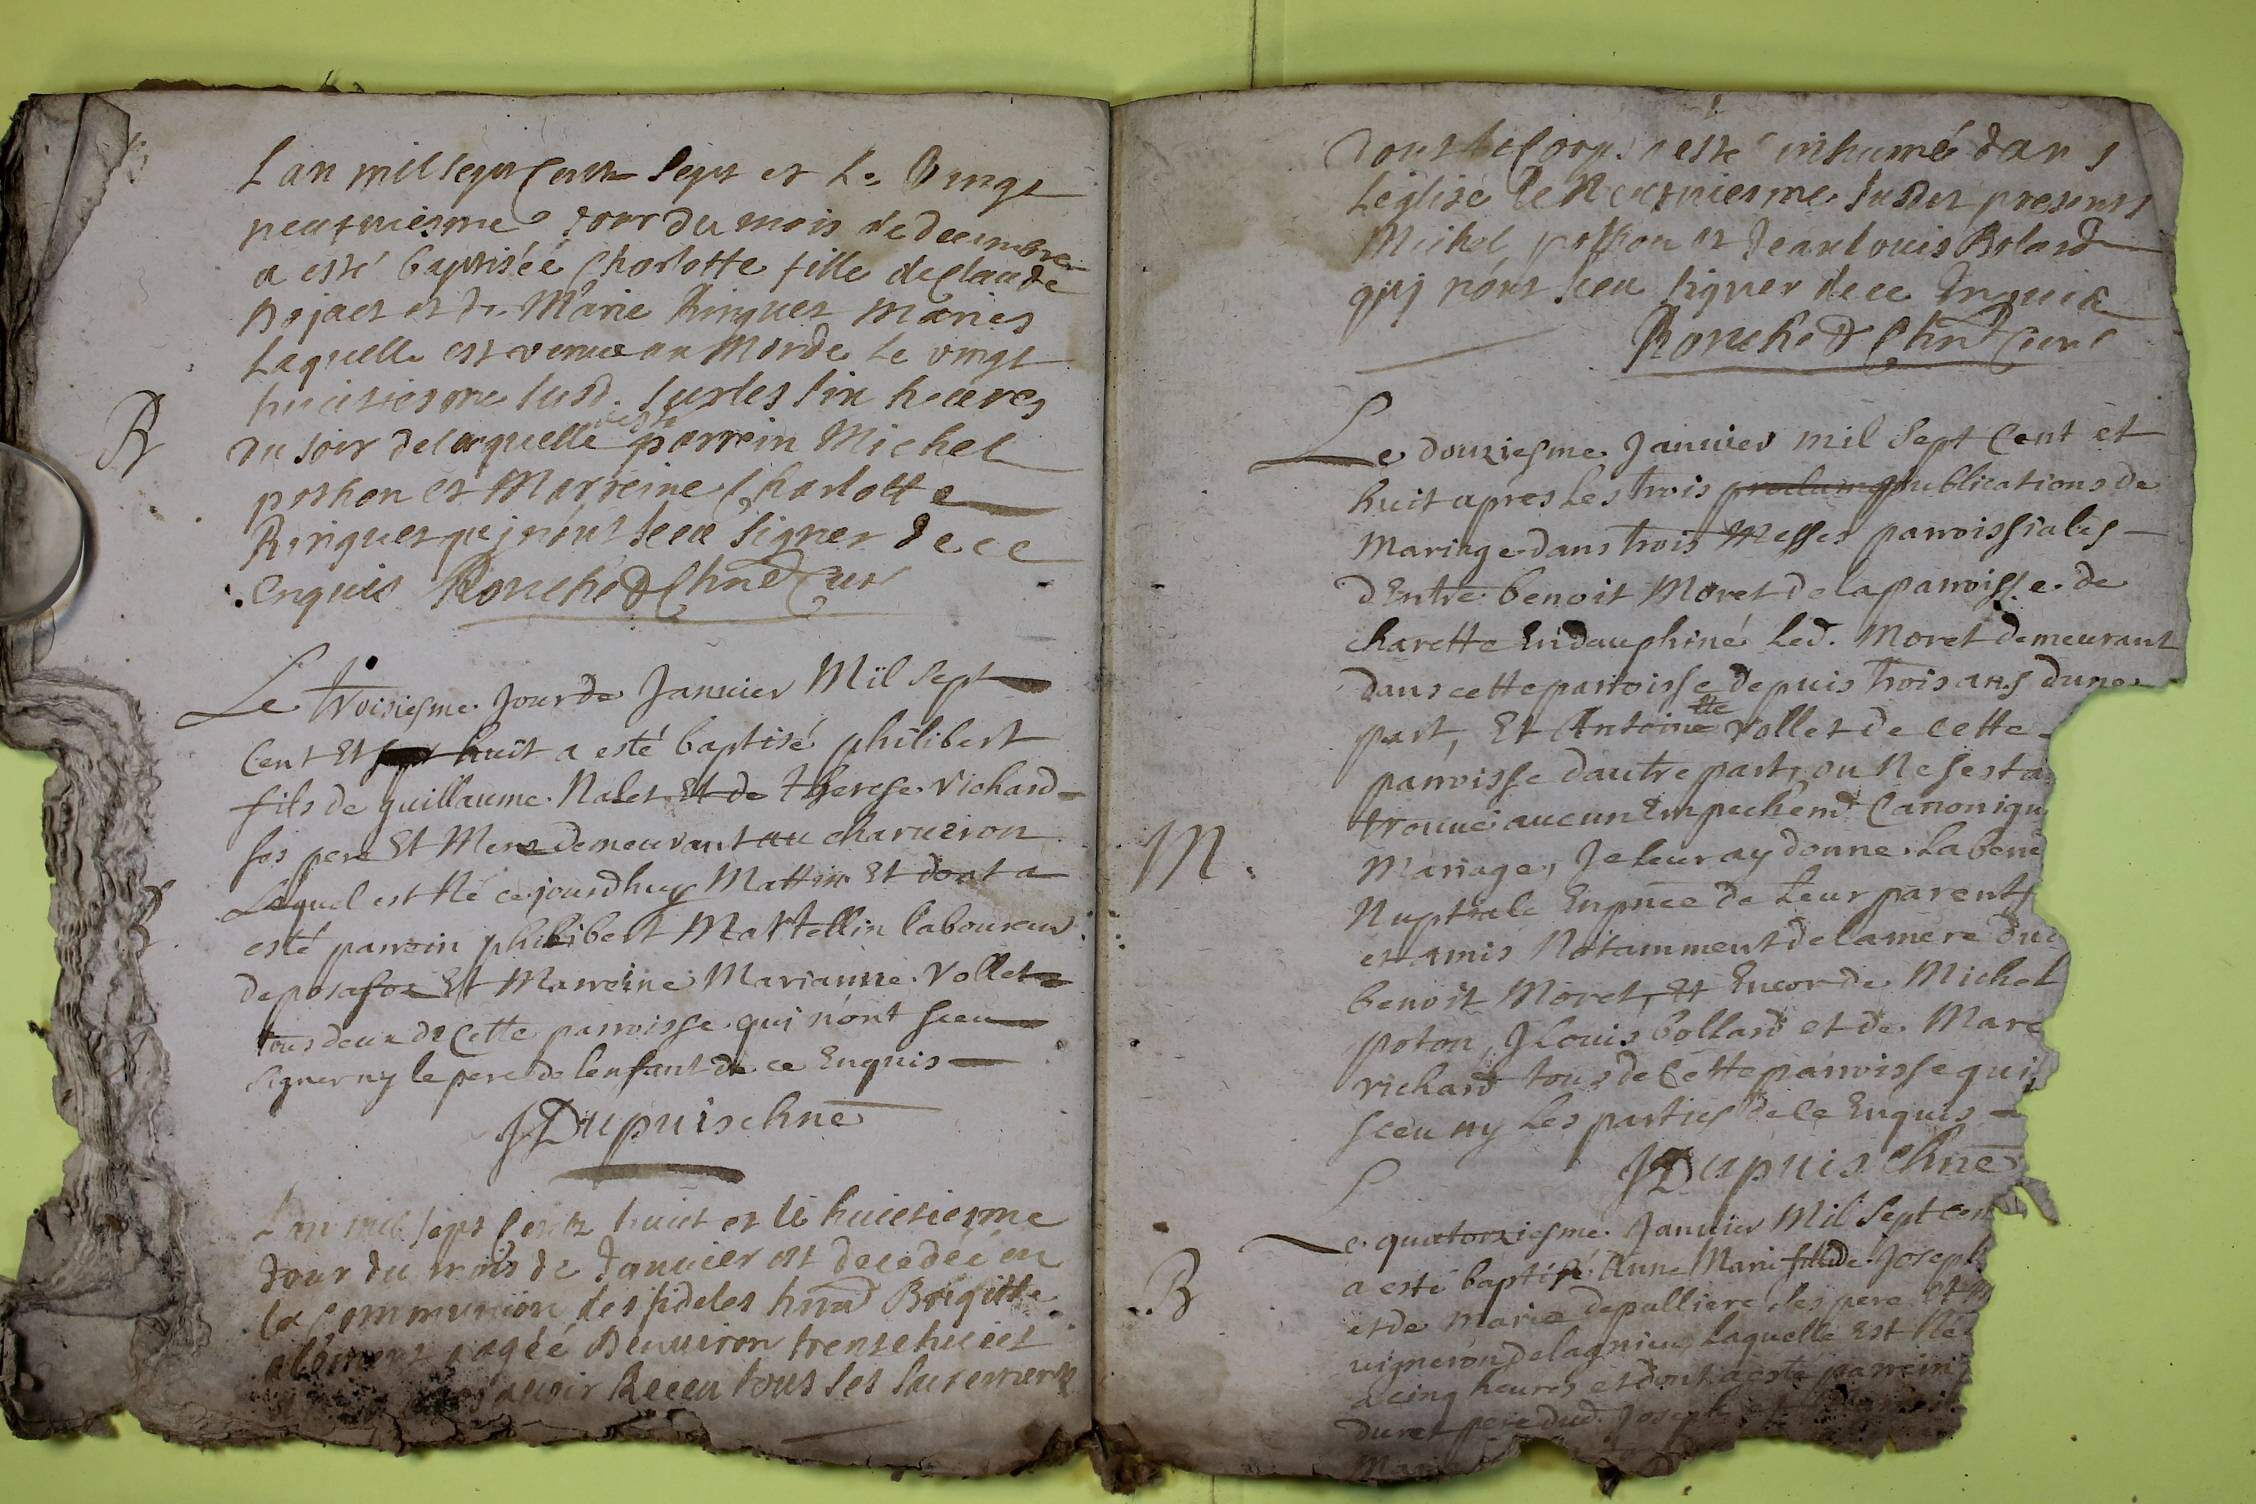 L an mil sept Cents sept et Le Vingt
neufuiesme Jour du mois de decembre
a esté baptisée Charlotte fille de Claude
et de Marie Ringuet Mariés
Laquelle est venue au Monde Le vingt
huitiesme susd. sur les six heures
du soir de laquelle est parrein Michel
pothon et Marreine Charlotte
Ringuet qui n'ont sceu signer de ce
Enquis Rouché Chne Curé
B
Le troisiesme Jour de Januier Mil Sept
Cent Et huit a esté baptisé philibert
fils de guillaume Nalet Et de therese Richard
ses pere Et Mere demeurant au charueron
Lequel est Né ce jourdhuy Mattin Et dont a
esté parroin philibert Mattellin laboureur
de posafoz Et Marreine Marianne Vollet
tous deux de Cette parroisse qui n'ont sceu
signer ny le pere de lenfant de ce Enquis
B
JDupuis chne
L an mil sept Cents huict et le huictiesme
Jour du mois de Januier est decedéé en
la Communion des fideles hnd Brigitte
agéé Denuiron trente huict
avoir Receu tous les sacrements
Dont le Corps a esté inhumé dans
L'église le Neufuiesme susdit presents
Michel pothon et Jean Louis Bolard
quj n'ont sceu signer de ce Enquis
Rouché Chne Curé
Le douziesme Januier mil Sept Cent et
huit apres Les trois proclam publications de
Mariage dans trois Messes parroissiales
dEntre benoit Moret de la parroisse de
charette En dauphiné Led. Moret demeurant
dans cette parroisse depuis trois ans dune
part, Et Antoinette Vollet de Cette
parroisse dautre part, ou Ne sesta
trouué aucun Empechemt Canoniqu
Mariage, Je leur ay donne La bene
Nuptiale En pnce de Leur parents
et amis Notamment de la mere du
benoit Moret, Et Encor de Michel
poton, J Louis bollard et de Marc
richard tous de Cette parroisse qui
sceu ny Les parties de Ce Enquis
M
JDupuis Chne
Le quatorziesme Januier Mil Sept Cen
a esté baptisé Anne Marie fille de Joseph
et de Marie depalliere ses pere et
vigneron de lagnieu, Laquelle Est Né
a cinq heures et dont a este parrein
Duret pere dud. Joseph
Marie
B